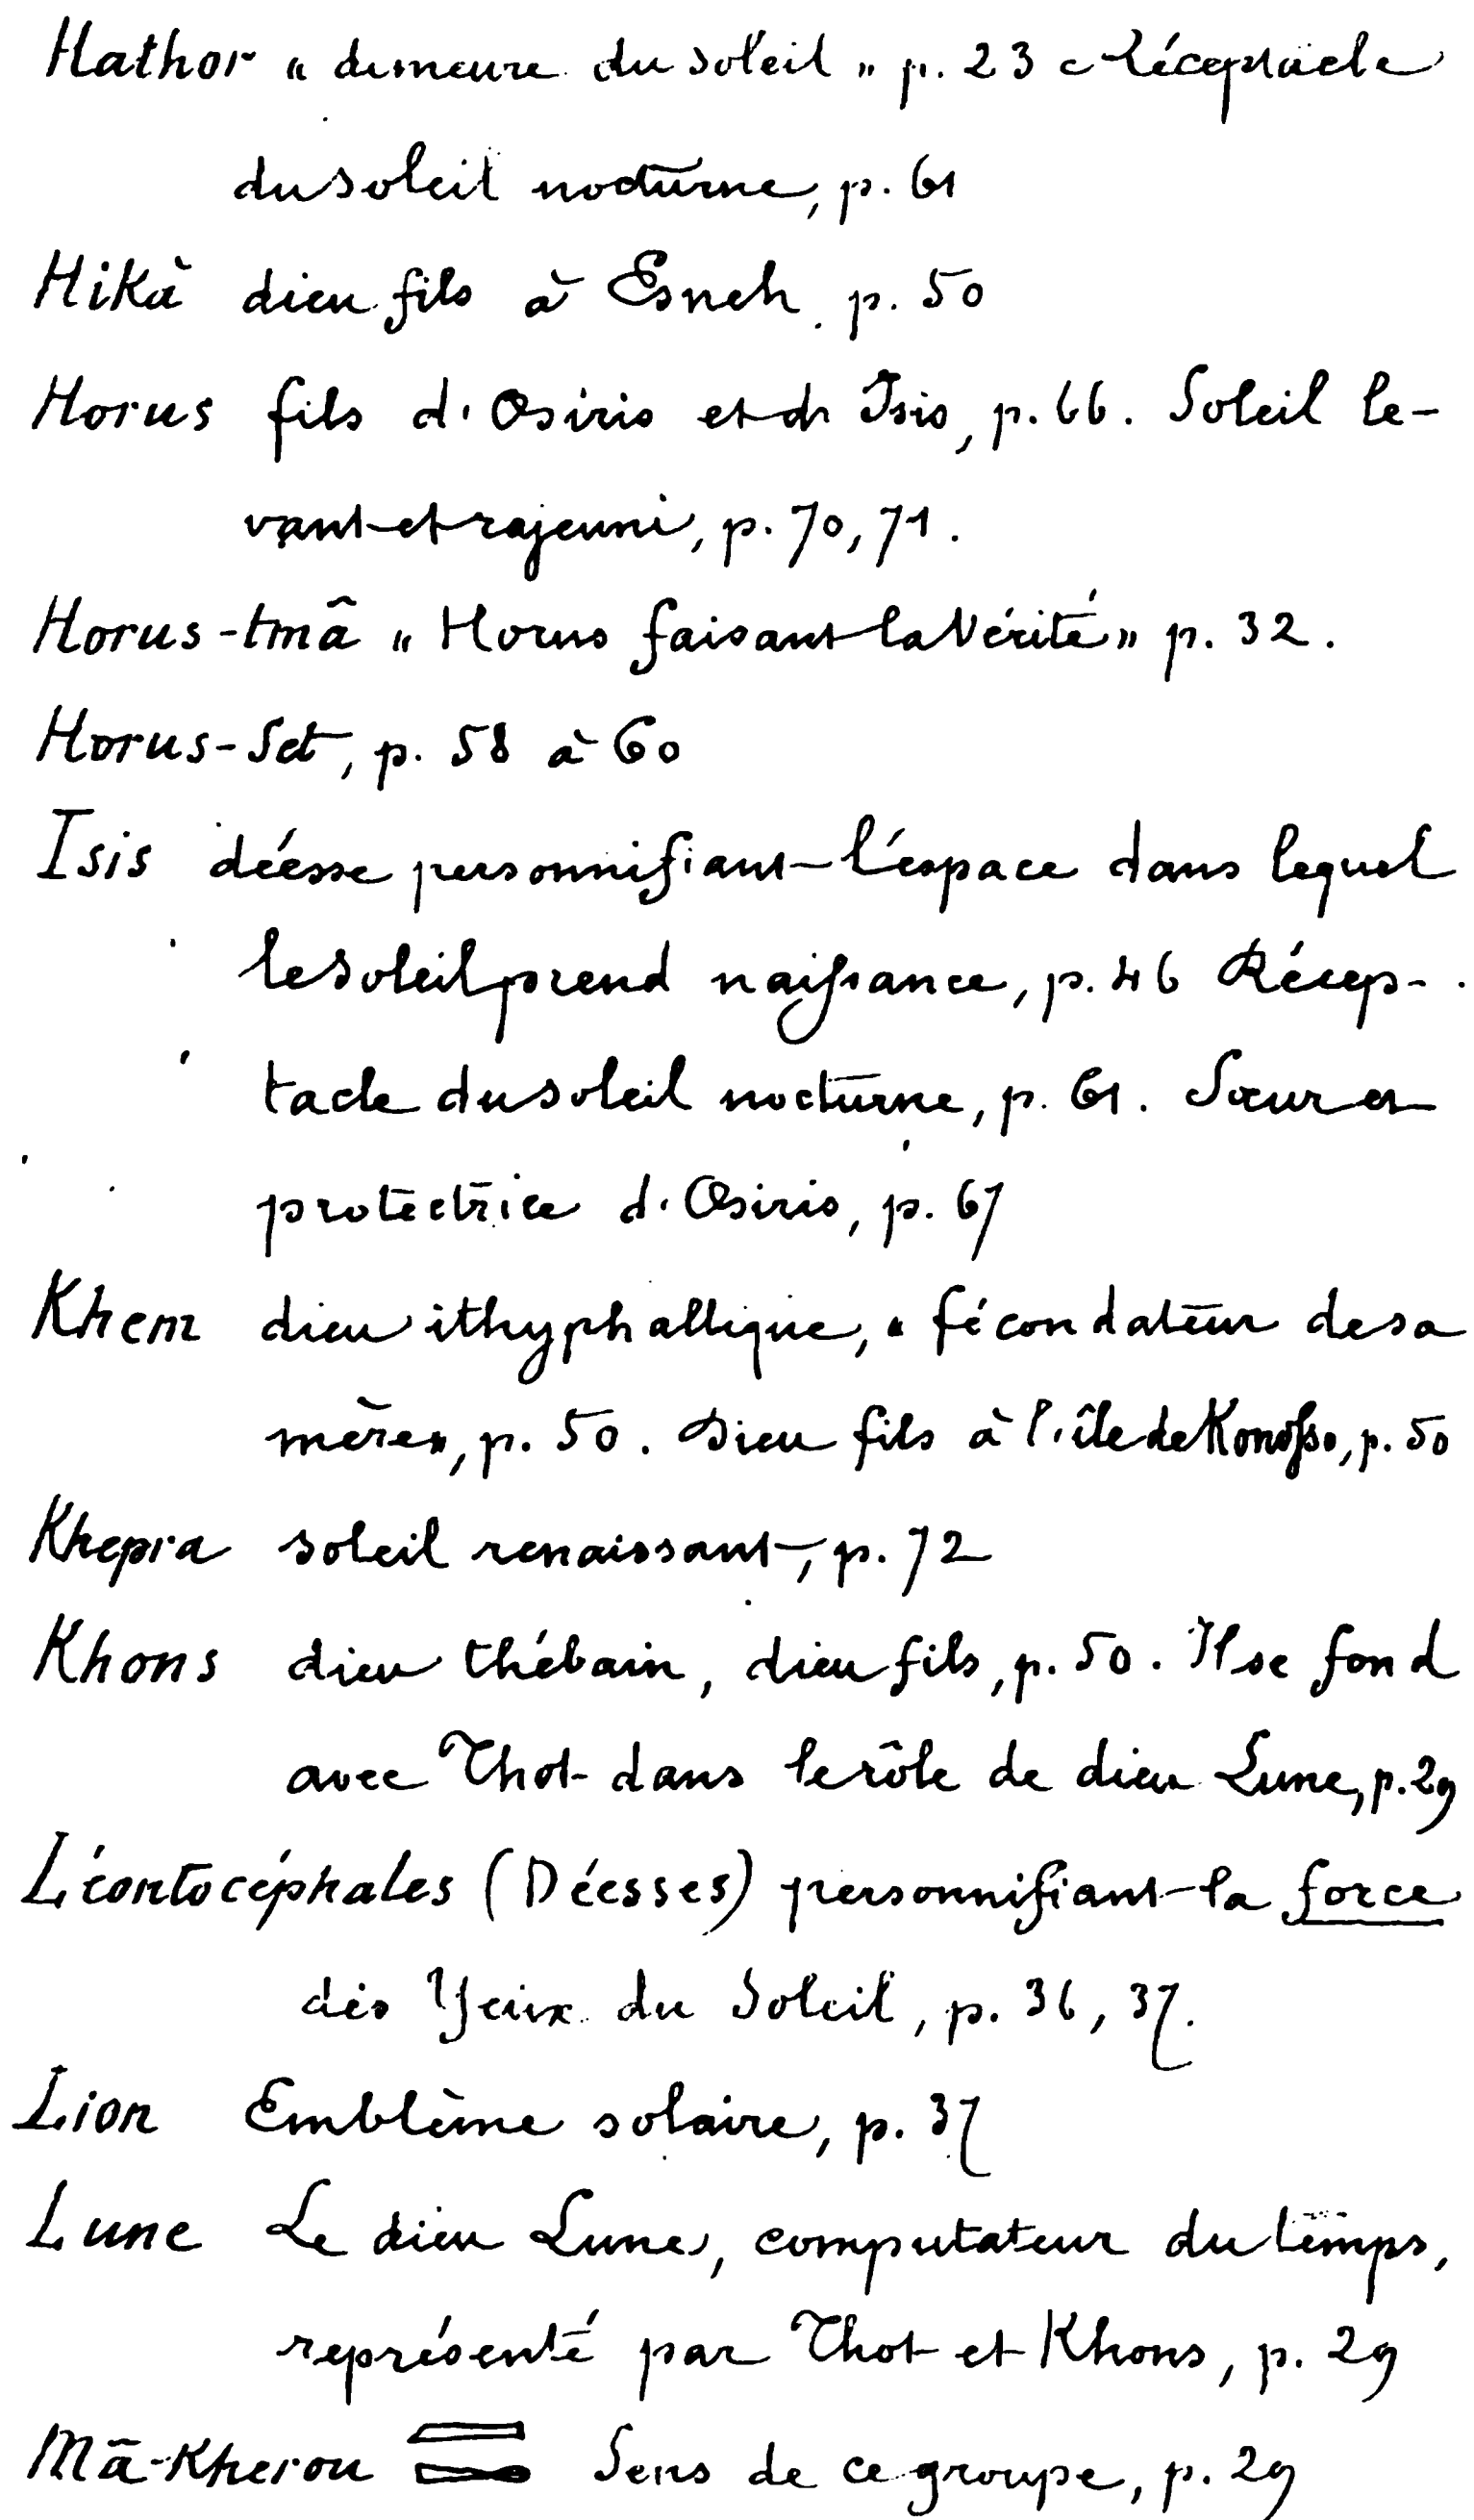 Hathor « demeure du soleil » p. 23 Réceptacle
du soleil nocturne, p. 61
Hikà dieu fils à Esneh. p. 50
Horus fils d'Osiris et d'Isis, p. 66. Soleil le-
vant et rajeuni, p. 70, 71.
Horus-tmâ « Horus faisant la Vérité » p. 32.
Horus-Set, p. 58 à 60
Isis déesse personnifiant l'espace dans lequel
le soleil prend naissance, p. 46 Récep-
tacle du soleil nocturne, p. 61. Sœur et
protectrice d'Osiris, p. 67
Khem dieu ithyphallique, « fécondateur de sa
mère », p. 50. Dieu fils à l'île de Konosso, p. 50
Khepra soleil renaissant, p. 72
Khons dieu thébain, dieu fils, p. 50. Il se fond
avec Thot dans le rôle de dieu Lune, p. 29
Léontocéphales (Déesses) personnifiant la force
des Yeux du Soleil, p. 36, 37.
Lion Emblème solaire, p. 37
Lune Le dieu Lune, computateur du temps,
représenté par Thot et Khons, p. 29
Mā-Kherou Sens de ce groupe, p. 29